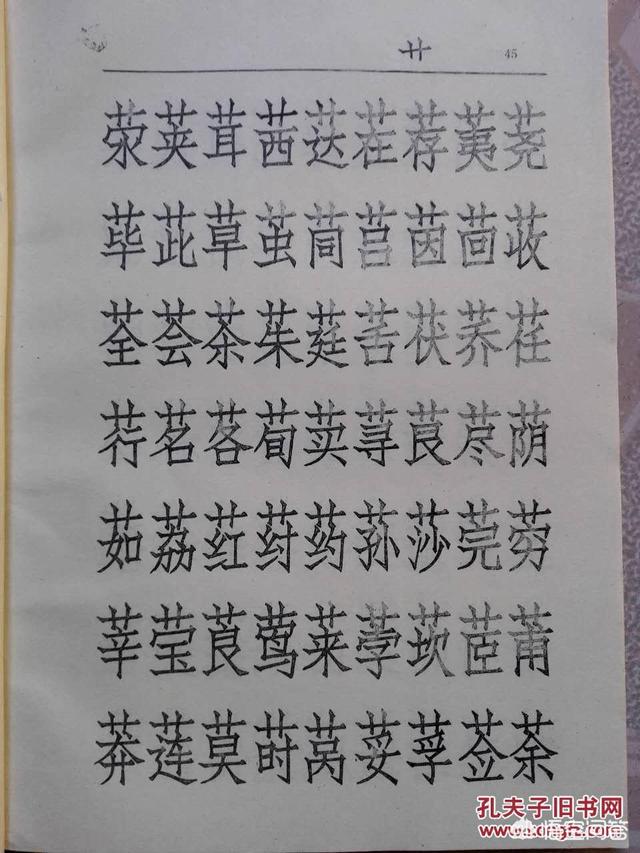 艹 45
荥荚茸茜荙茬荐荑荛
荜茈草茧茼莒茵茴荍
荃荟茶茱莛䒷茯荞荏
荇茗茖荀荬荨茛荩荫
茹荔荭荮药荪莎莞䓖
莘莹莨莺莱荸莰茝莆
莽莲莫莳莴荽莩莶荼
孔夫子旧书网